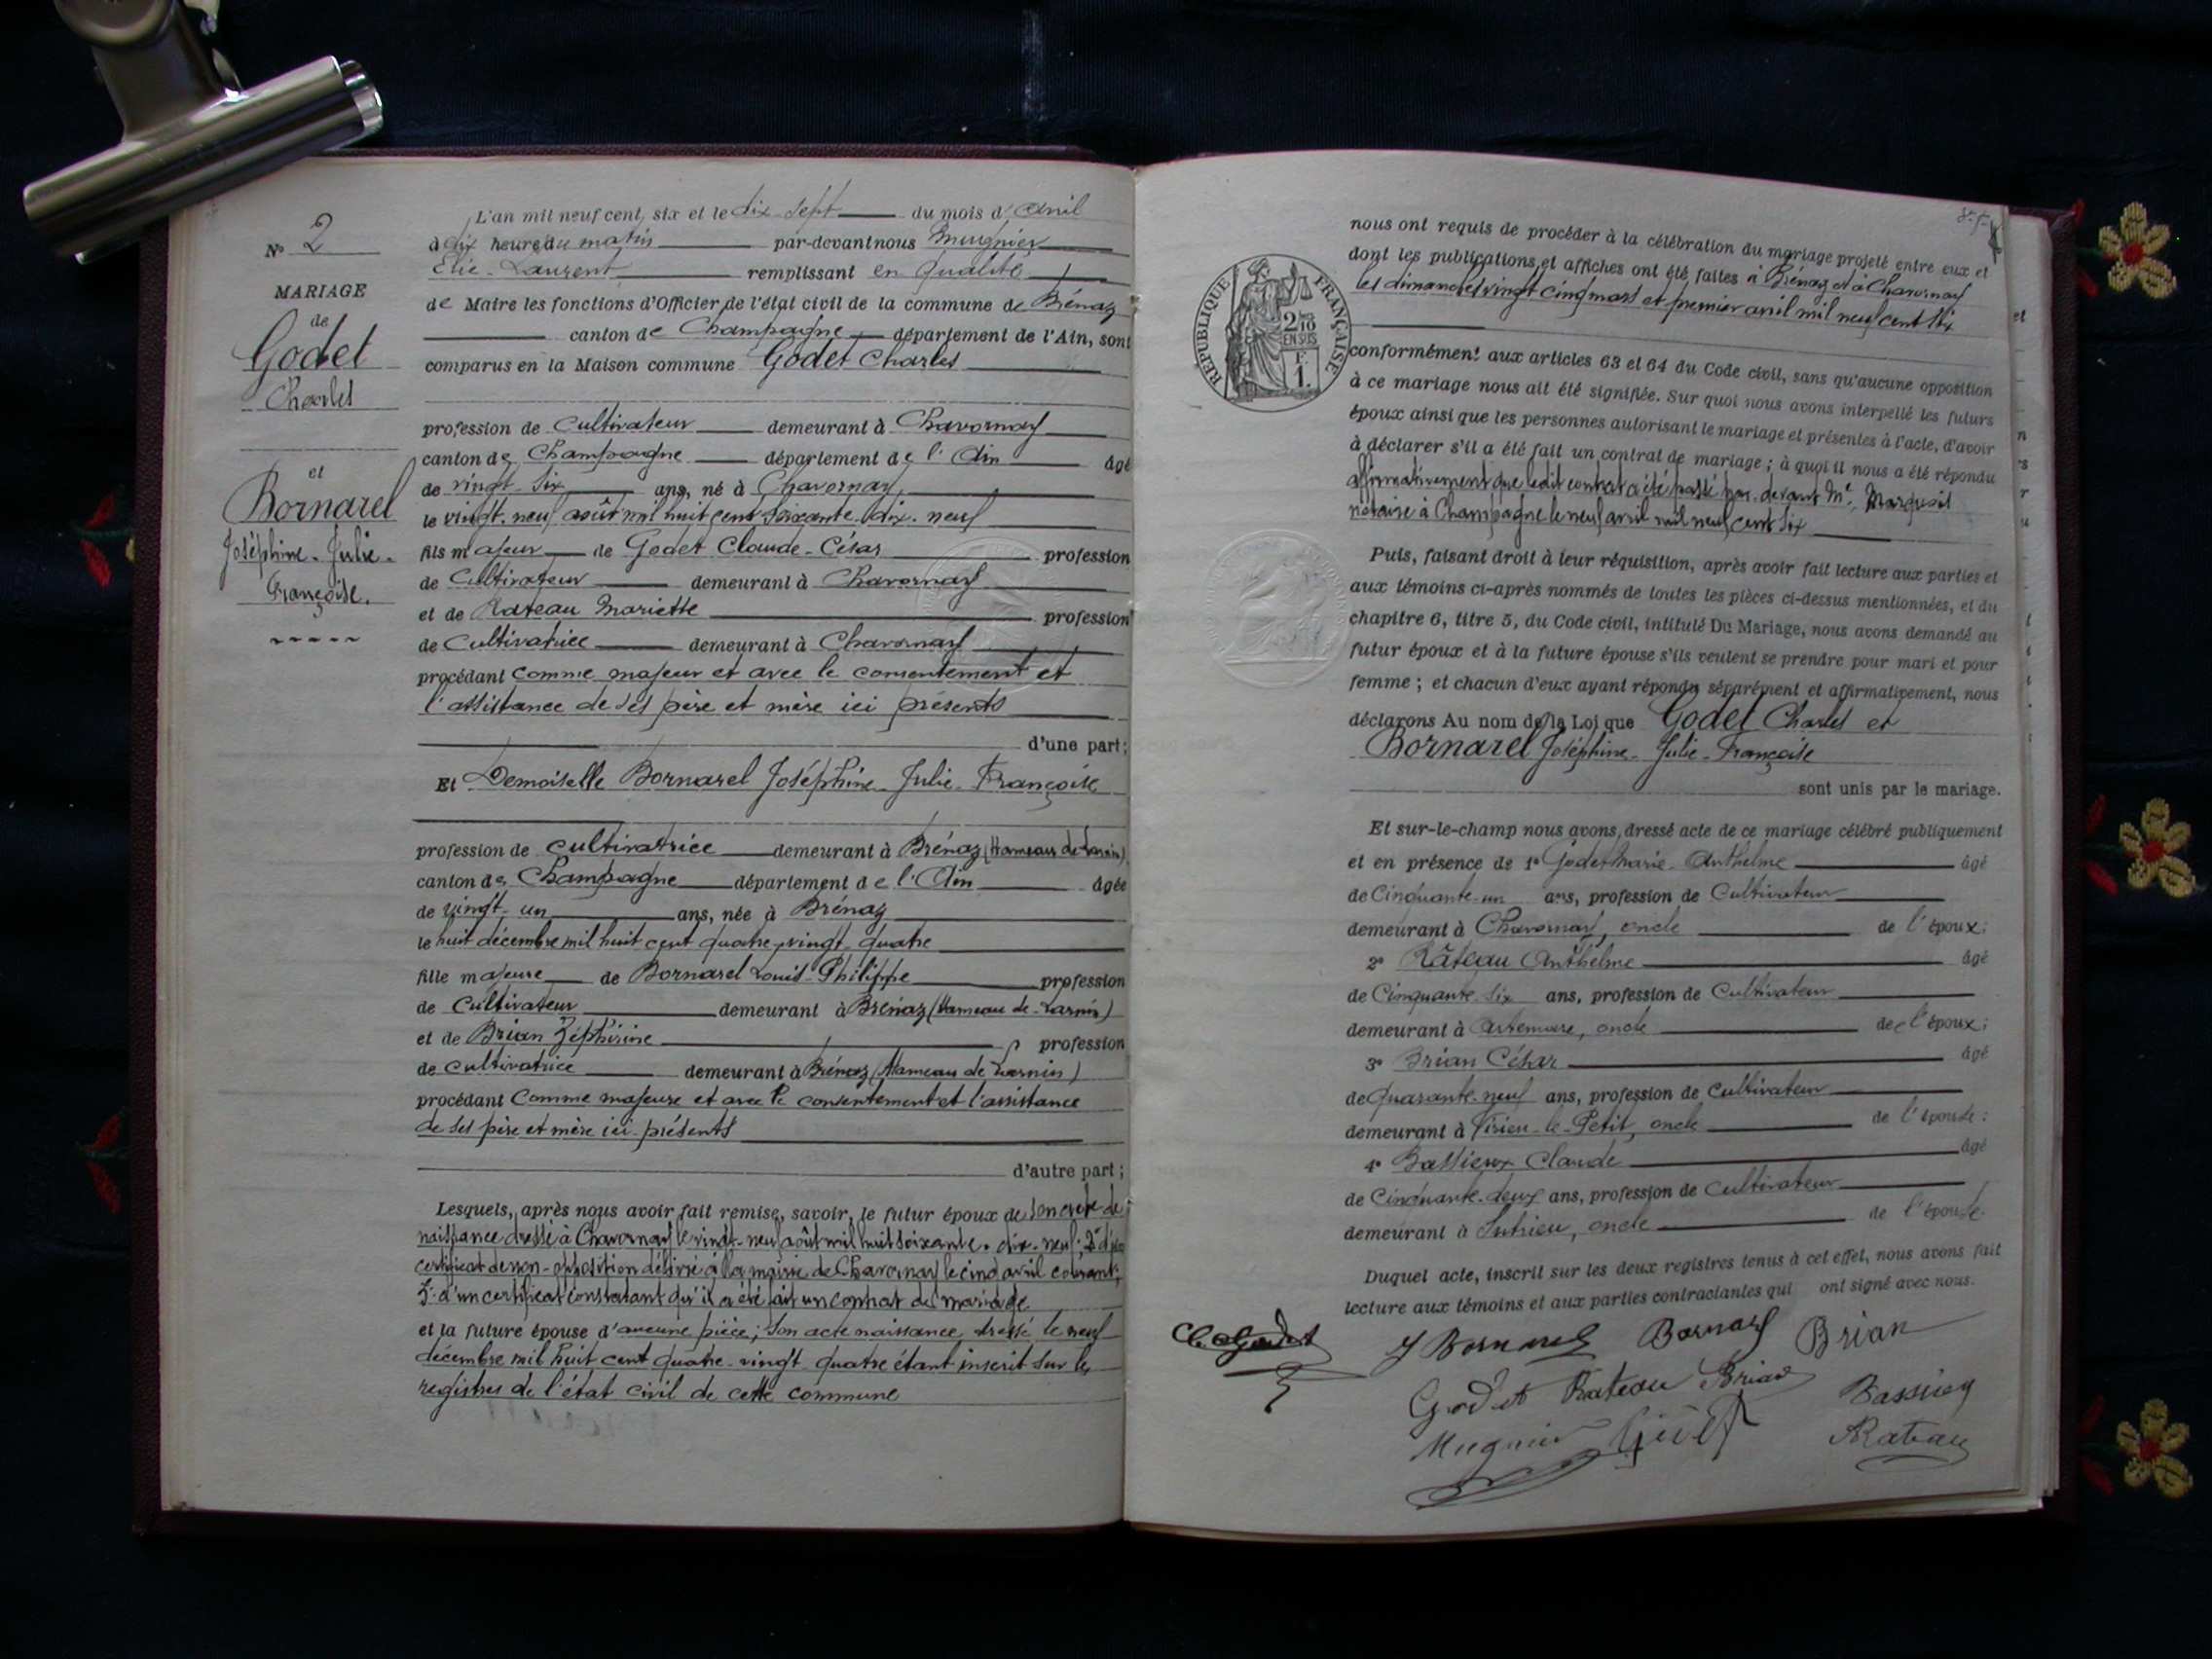 N° 2
MARIAGE
de
Godet
Charles
et
Bornarel
Joséphine-Julie-
Françoise.
L'an mil neuf cent six et le dix-sept du mois d'avril
à dix heures du matin par-devant nous Meugnier
Elie-Laurent remplissant en qualité
de Maire les fonctions d'Officier de l'état civil de la commune de Brénaz
canton de Champagne département de l'Ain, sont
comparus en la Maison commune Godet Charles
profession de Cultivateur demeurant à Chavornay
canton de Champagne département de l'Ain âgé
de vingt-six ans, né à Chavornay
le vingt-neuf août mil huit cent soixante-dix-neuf
fils majeur de Godet Claude-César profession
de Cultivateur demeurant à Chavornay
et de Rateau Mariette profession
de Cultivatrice demeurant à Chavornay
procédant comme majeur et avec le consentement et
l'assistance de ses père et mère ici présents
d'une part;
Et Demoiselle Bornarel Joséphine-Julie-Françoise
profession de cultivatrice demeurant à Brénaz (Hameau de Larnin)
canton de Champagne département de l'Ain âgée
de vingt-un ans, née à Brénaz
le huit décembre mil huit cent quatre-vingt-quatre
fille majeure de Bornarel Louis-Philippe profession
de Cultivateur demeurant à Brénaz (Hameau de Larnin)
et de Brian Zéphirine profession
de cultivatrice demeurant à Brénaz (Hameau de Larnin)
procédant comme majeure et avec le consentement et l'assistance
de ses père et mère ici présents
d'autre part;
Lesquels, après nous avoir fait remise, savoir, le futur époux de son acte de
naissance dressé à Chavornay le vingt-neuf août mil huit soixante-dix-neuf; 2° d'un
certificat de non-opposition délivré à la mairie de Chavornay le cinq avril courant;
3° d'un certificat constatant qu'il a été fait un contrat de mariage
et la future épouse d'aucune pièce; son acte naissance dressé le neuf
décembre mil huit cent quatre-vingt-quatre étant inscrit sur les
registres de l'état civil de cette commune
nous ont requis de procéder à la célébration du mariage projeté entre eux et
dont les publications et affiches ont été faites à Brénaz et à Chavornay
les dimanches vingt cinq mars et premier avril mil neuf cent six
RÉPUBLIQUE FRANÇAISE
2/10 EN SUS
F. 1.
conformément aux articles 63 et 64 du Code civil, sans qu'aucune opposition
à ce mariage nous ait été signifiée. Sur quoi nous avons interpellé les futurs
époux ainsi que les personnes autorisant le mariage et présentes à l'acte, d'avoir
à déclarer s'il a été fait un contrat de mariage; à quoi il nous a été répondu
affirmativement que ledit contrat a été passé par-devant Me Marquois
notaire à Champagne le neuf avril mil neuf cent six
Puis, faisant droit à leur réquisition, après avoir fait lecture aux parties et
aux témoins ci-après nommés de toutes les pièces ci-dessus mentionnées, et du
chapitre 6, titre 5, du Code civil, intitulé Du Mariage, nous avons demandé au
futur époux et à la future épouse s'ils veulent se prendre pour mari et pour
femme; et chacun d'eux ayant répondu séparément et affirmativement, nous
déclarons Au nom de la Loi que Godet Charles et
Bornarel Joséphine-Julie-Françoise
sont unis par le mariage.
Et sur-le-champ nous avons dressé acte de ce mariage célébré publiquement
et en présence de 1° Godet Marie-Anthelme âgé
de Cinquante-un ans, profession de Cultivateur
demeurant à Chavornay, oncle de l'époux;
2° Râteau Anthelme âgé
de Cinquante-six ans, profession de Cultivateur
demeurant à Artemare, oncle de l'époux;
3° Brian César âgé
de Quarante-neuf ans, profession de Cultivateur
demeurant à Virieu-le-Petit, oncle de l'épouse;
4° Bassieux Claude âgé
de Cinquante-deux ans, profession de Cultivateur
demeurant à Sutrieu, oncle de l'épouse.
Duquel acte, inscrit sur les deux registres tenus à cet effet, nous avons fait
lecture aux témoins et aux parties contractantes qui ont signé avec nous.
Ch. Godet J Bornarel Bornarel Brian
Godet Rateau Brian Bassieux
Mugnier Godet Rateau